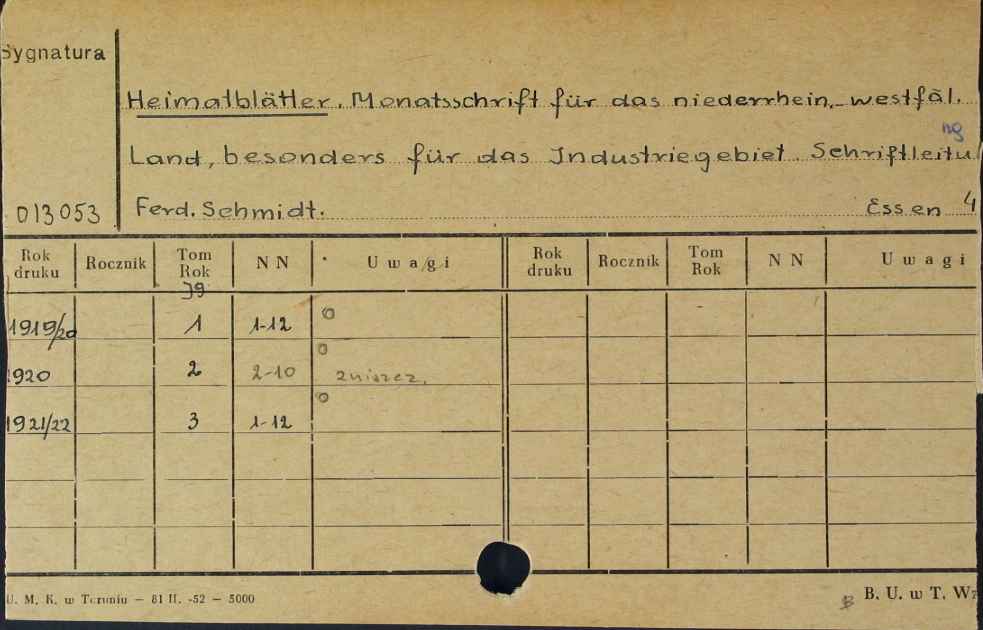 Sygnatura
Heimatblätter. Monatsschrift für das niederrhein.-westfäl.
Land, besonders für das Industriegebiet. Schriftleitung
013053 Ferd. Schmidt. Essen 4
Rok druku Rocznik Tom Rok N N Uwagi Rok druku Rocznik Tom Rok N N Uwagi
Jg
1919/20 1 1-12
1920 2 2-10 zniszcz.
1921/22 3 1-12
U. M. K. w Toruniu — 81 II. -52 — 5000 B. U. w T. Wz